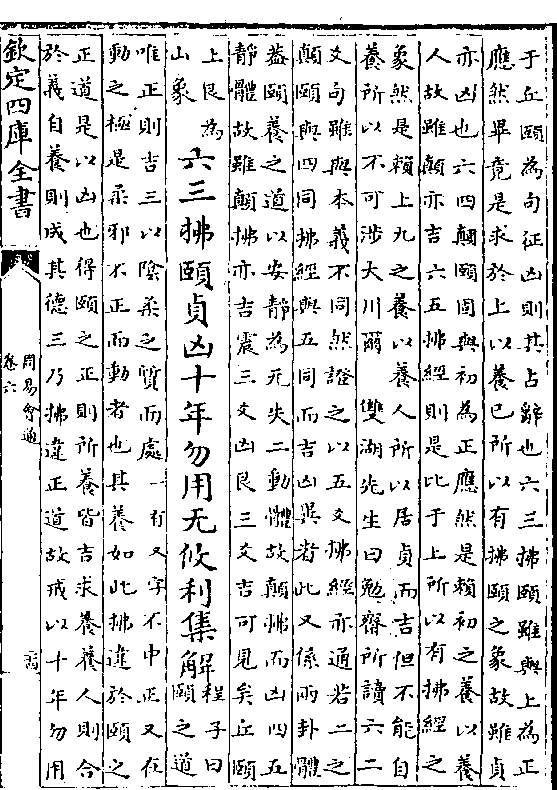 于丘頤為句征凶則其占辭也六三拂頤雖與上為正
應然畢竟是求於上以養已所以有拂頤之象故雖貞
亦凶也六四顛頤固與初為正應然是賴初之養以養
人故雖顛亦吉六五拂經則是比于上所以有拂經之
象然是賴上九之養以養人所以居貞而吉但不能自
養所以不可涉大川爾 雙湖先生曰勉齋所讀六二
爻句雖與本義不同然證之以五爻拂經亦通若二之
顛頤與四同拂經與五同而吉凶異者此又係兩卦體
蓋頤養之道以安靜為无失二動體故顛拂而凶四五
靜體故雖顛拂亦吉震三爻凶艮三爻吉可見矣丘頤
上艮為
山象
六三拂頤貞凶十年勿用无攸利集解
程子曰
頤之道
唯正則吉三以陰柔之質而處一有又字不中正又在
動之極是柔邪不正而動者也其養如此拂違於頤之
正道是以凶也得頤之正則所養皆吉求養養人則合
於義自養則成其德三乃拂違正道故戒以十年勿用
欽定四庫全書
周易會通
卷六